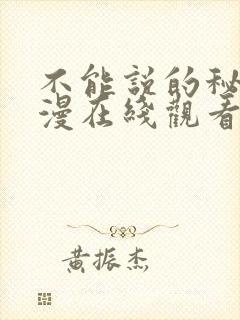 不能說的秘
漫在綫觀看
黃振杰